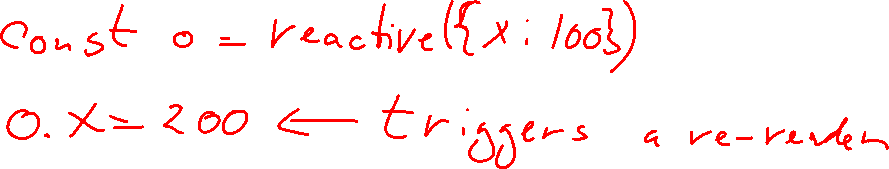 const o = reactive({x: 100})
o.x = 200 ← triggers a re-render